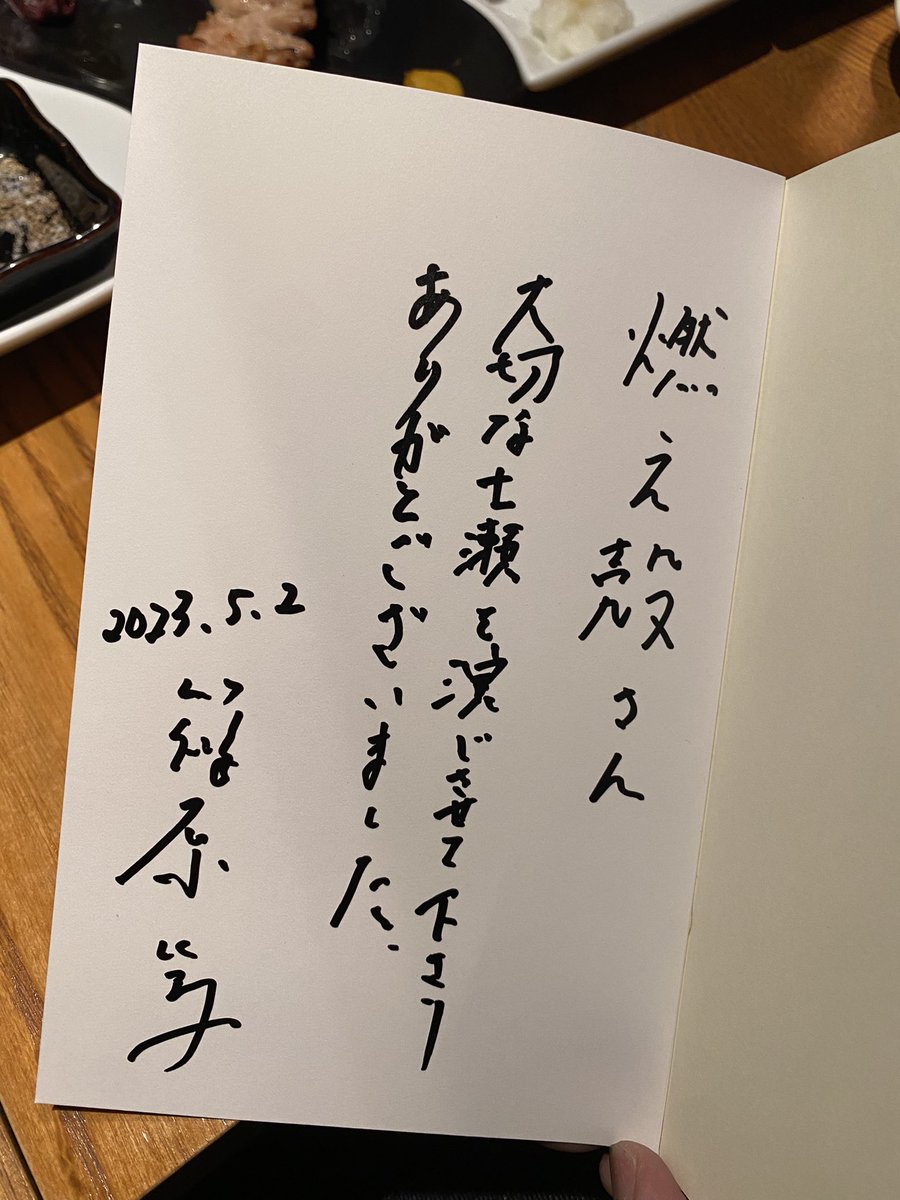 燃え殻さん
大切な七瀬を演じさせて下さり
ありがとございました.
2023.5.2
篠原篤